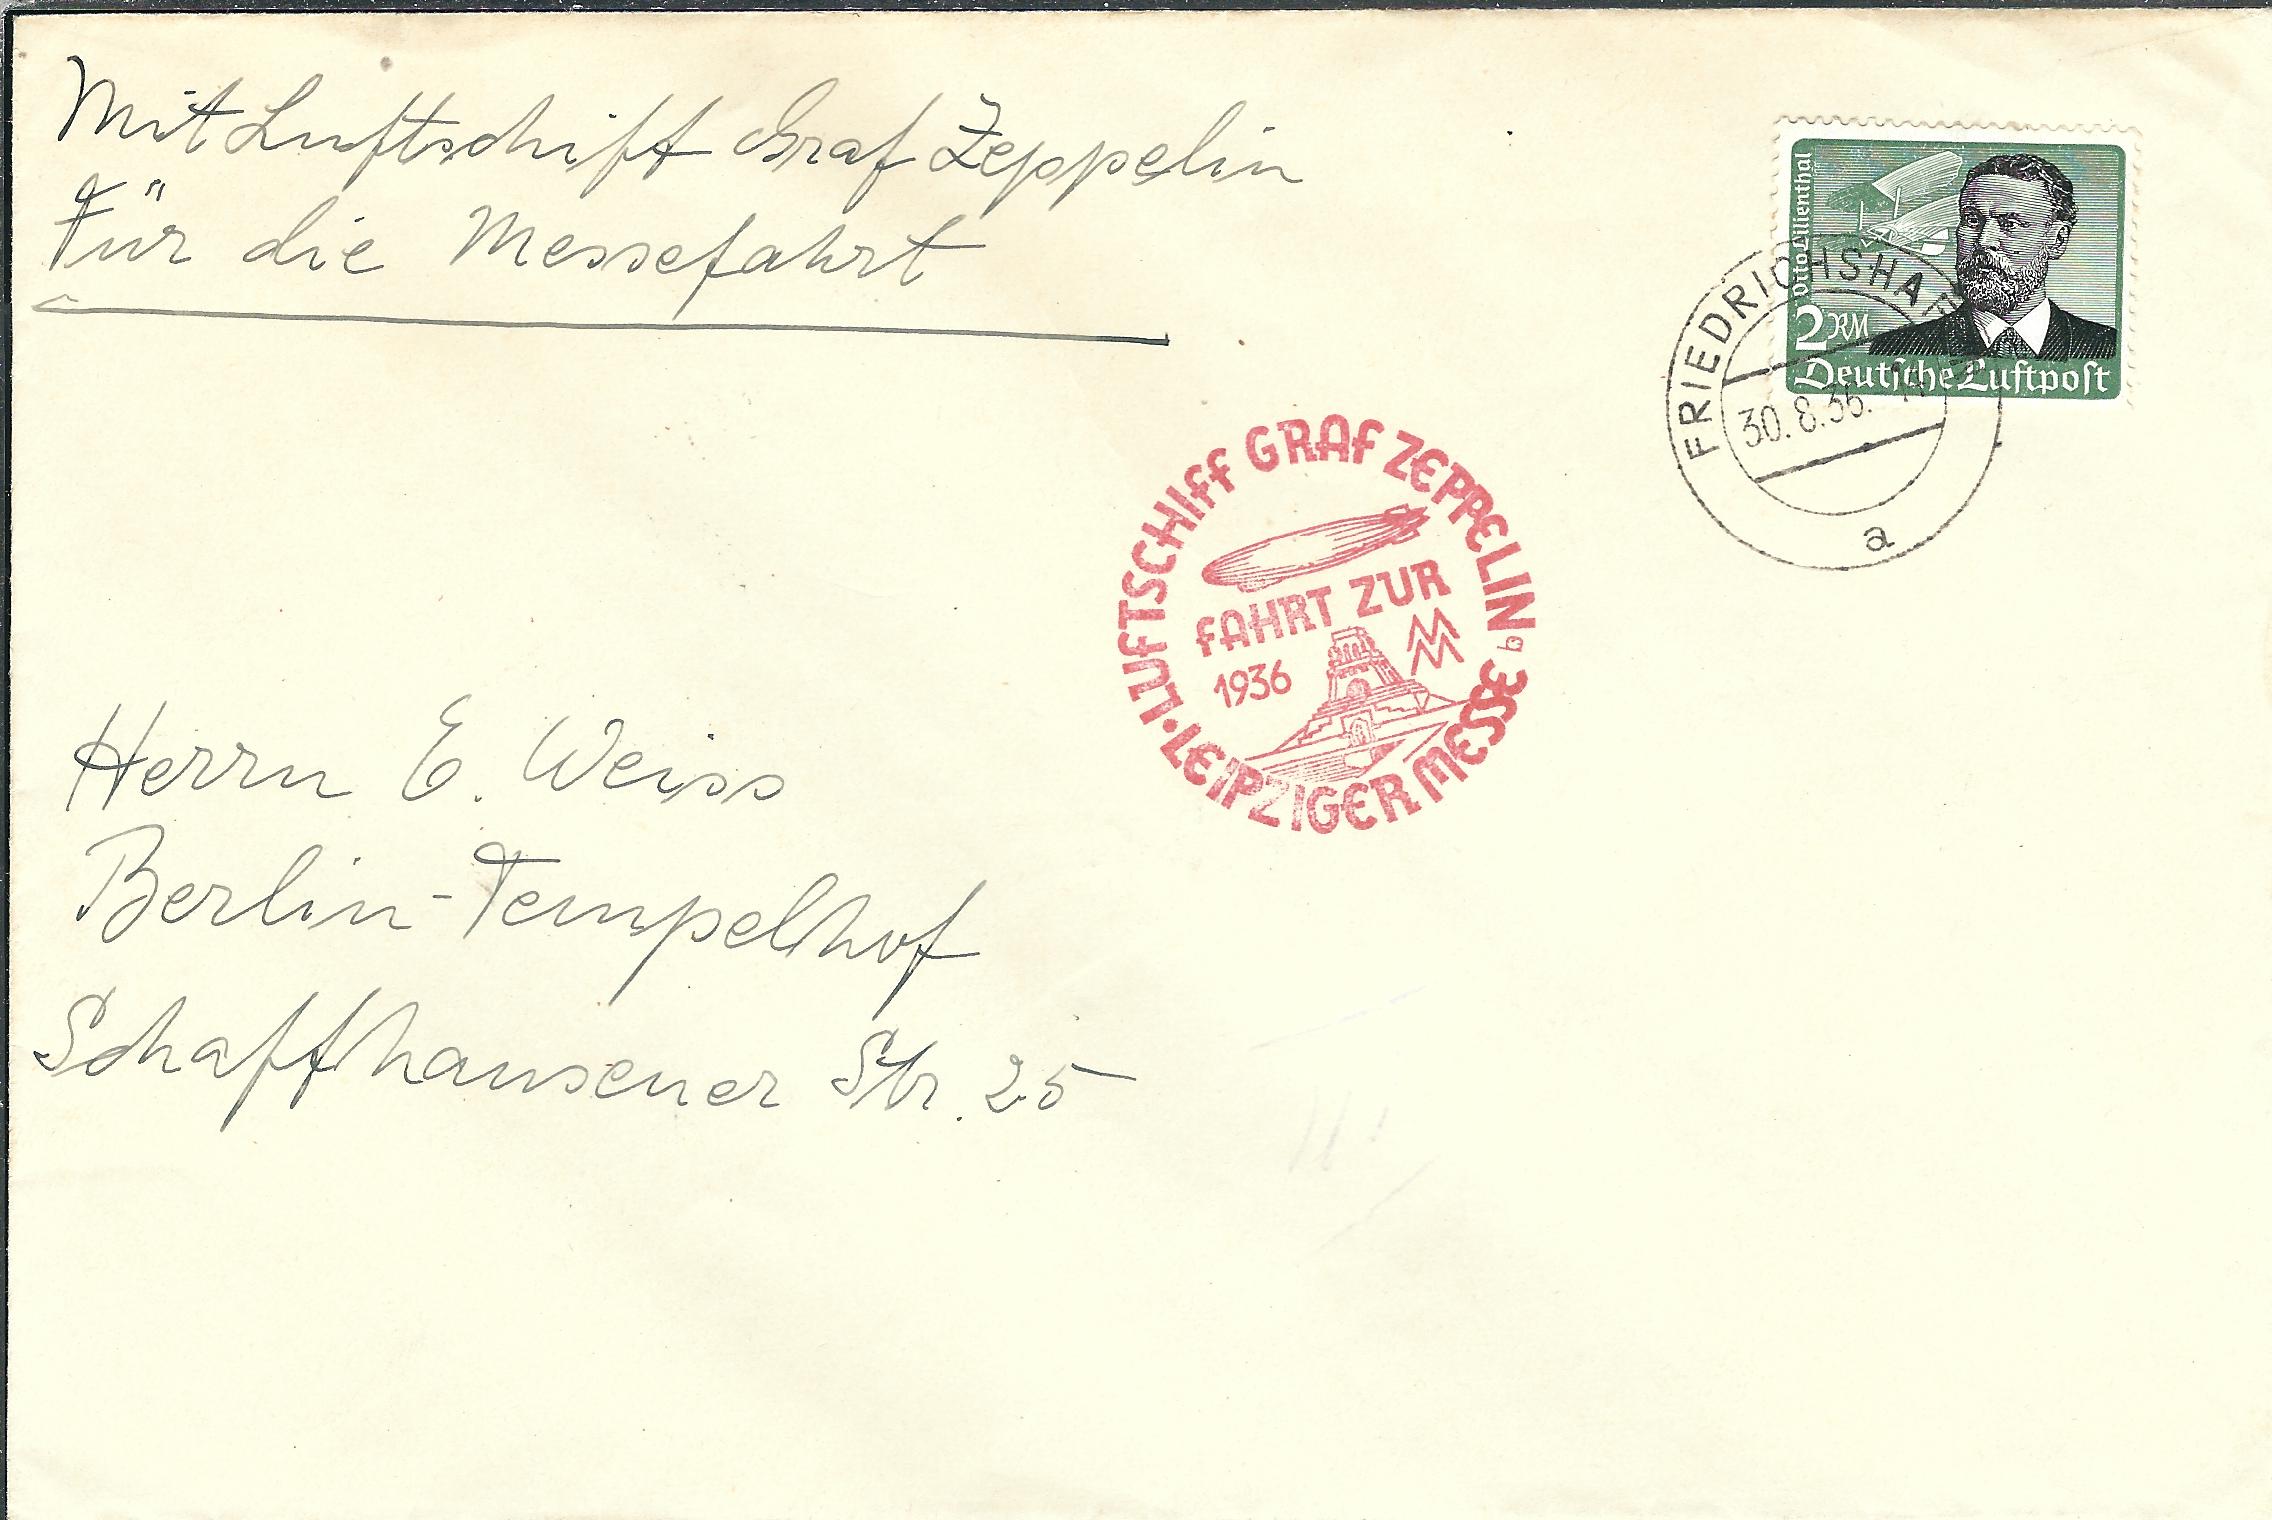 Mit Luftschiff Graf Zeppelin
Für die Messefahrt
Otto Lilienthal
2 RM
Deutsche Luftpost
FRIEDRICHSHAFEN
30.8.36.
a
LUFTSCHIFF GRAF ZEPPELIN
b
FAHRT ZUR
MM
1936
LEIPZIGER MESSE
Herrn E. Weiss
Berlin-Tempelhof
Schaffhausener Str. 25